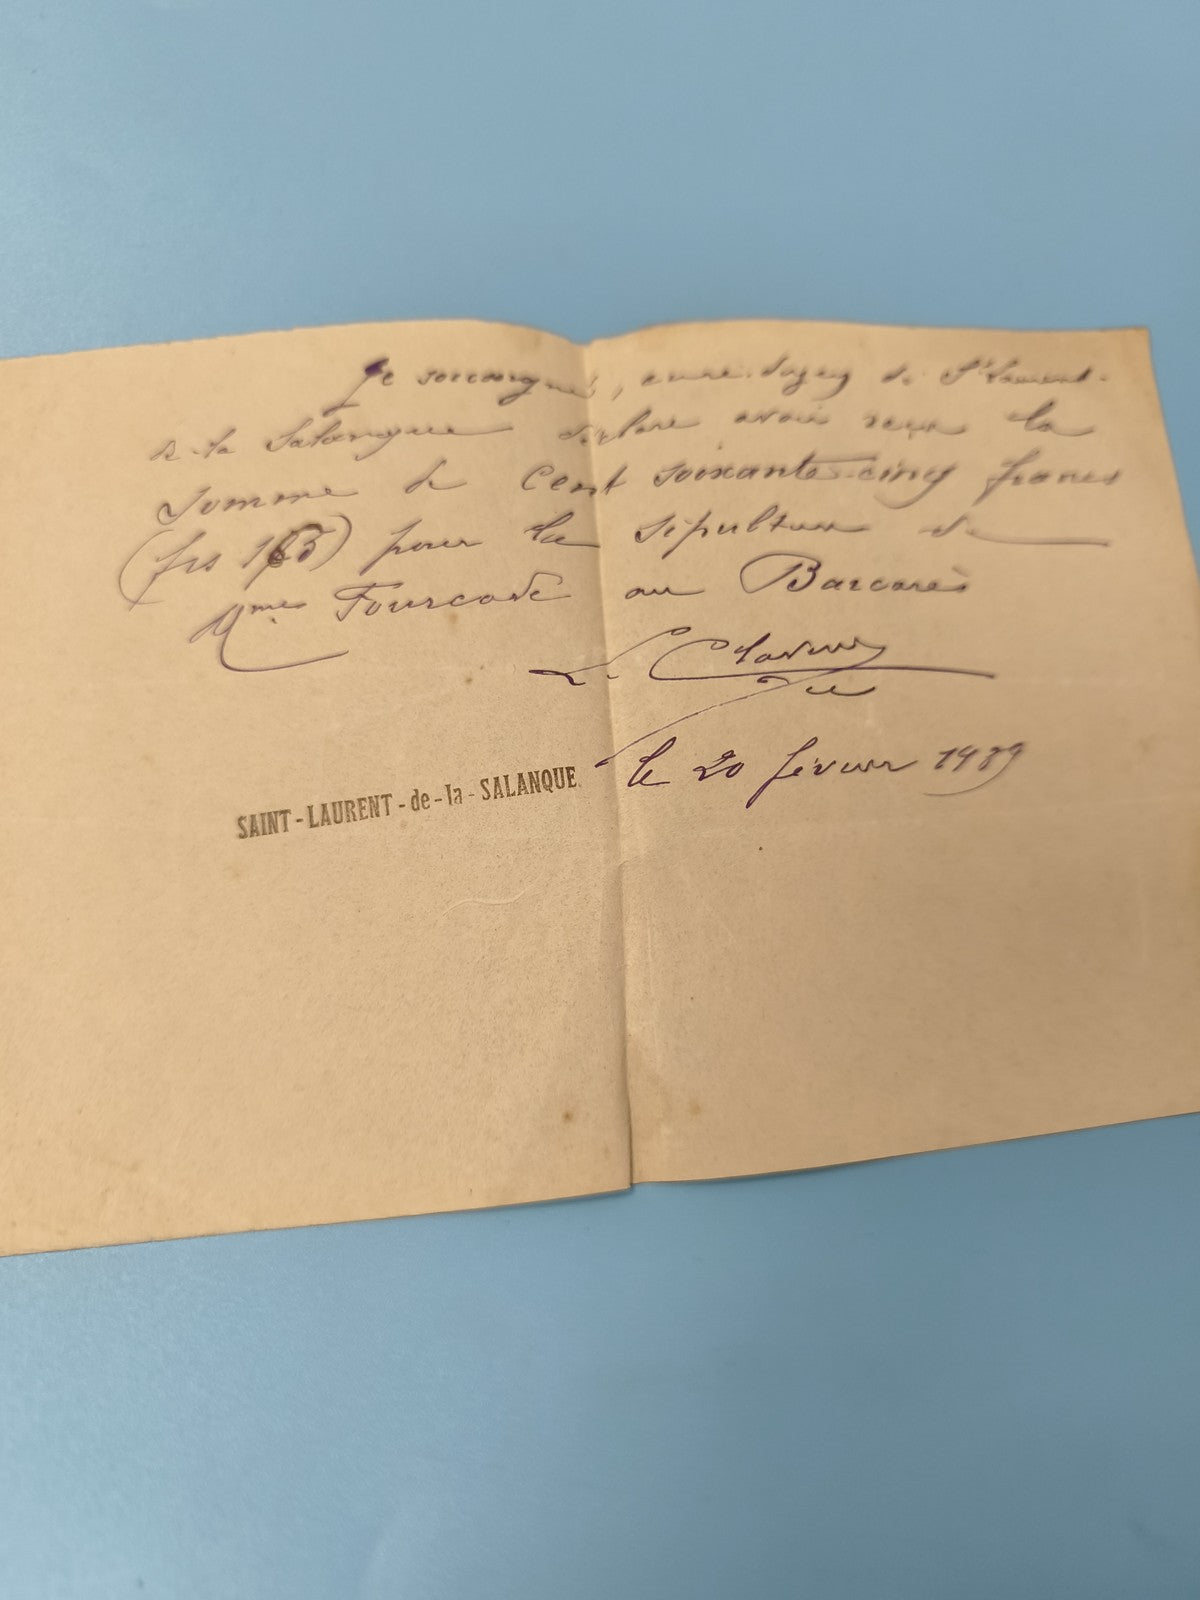 Je soussigné, curé-doyen de St Laurent-
de-la Salanque déclare avoir reçu la
somme de Cent soixante-cinq francs
(frs 165) pour la sépulture de
Mme Fourcade au Barcarès
le 20 février 1939
SAINT-LAURENT-de-la-SALANQUE